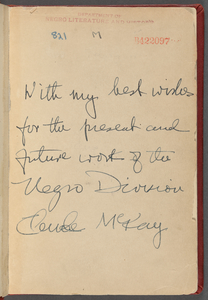 DEPARTMENT OF
NEGRO LITERATURE
821 M
9422097
With my best wishes
for the present and
future work of the
Negro Division
Claude McKay